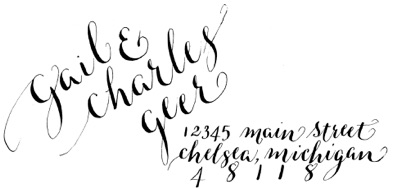 gail &
charles
geer
12345 main street
chelsea, michigan
4 8 1 1 8